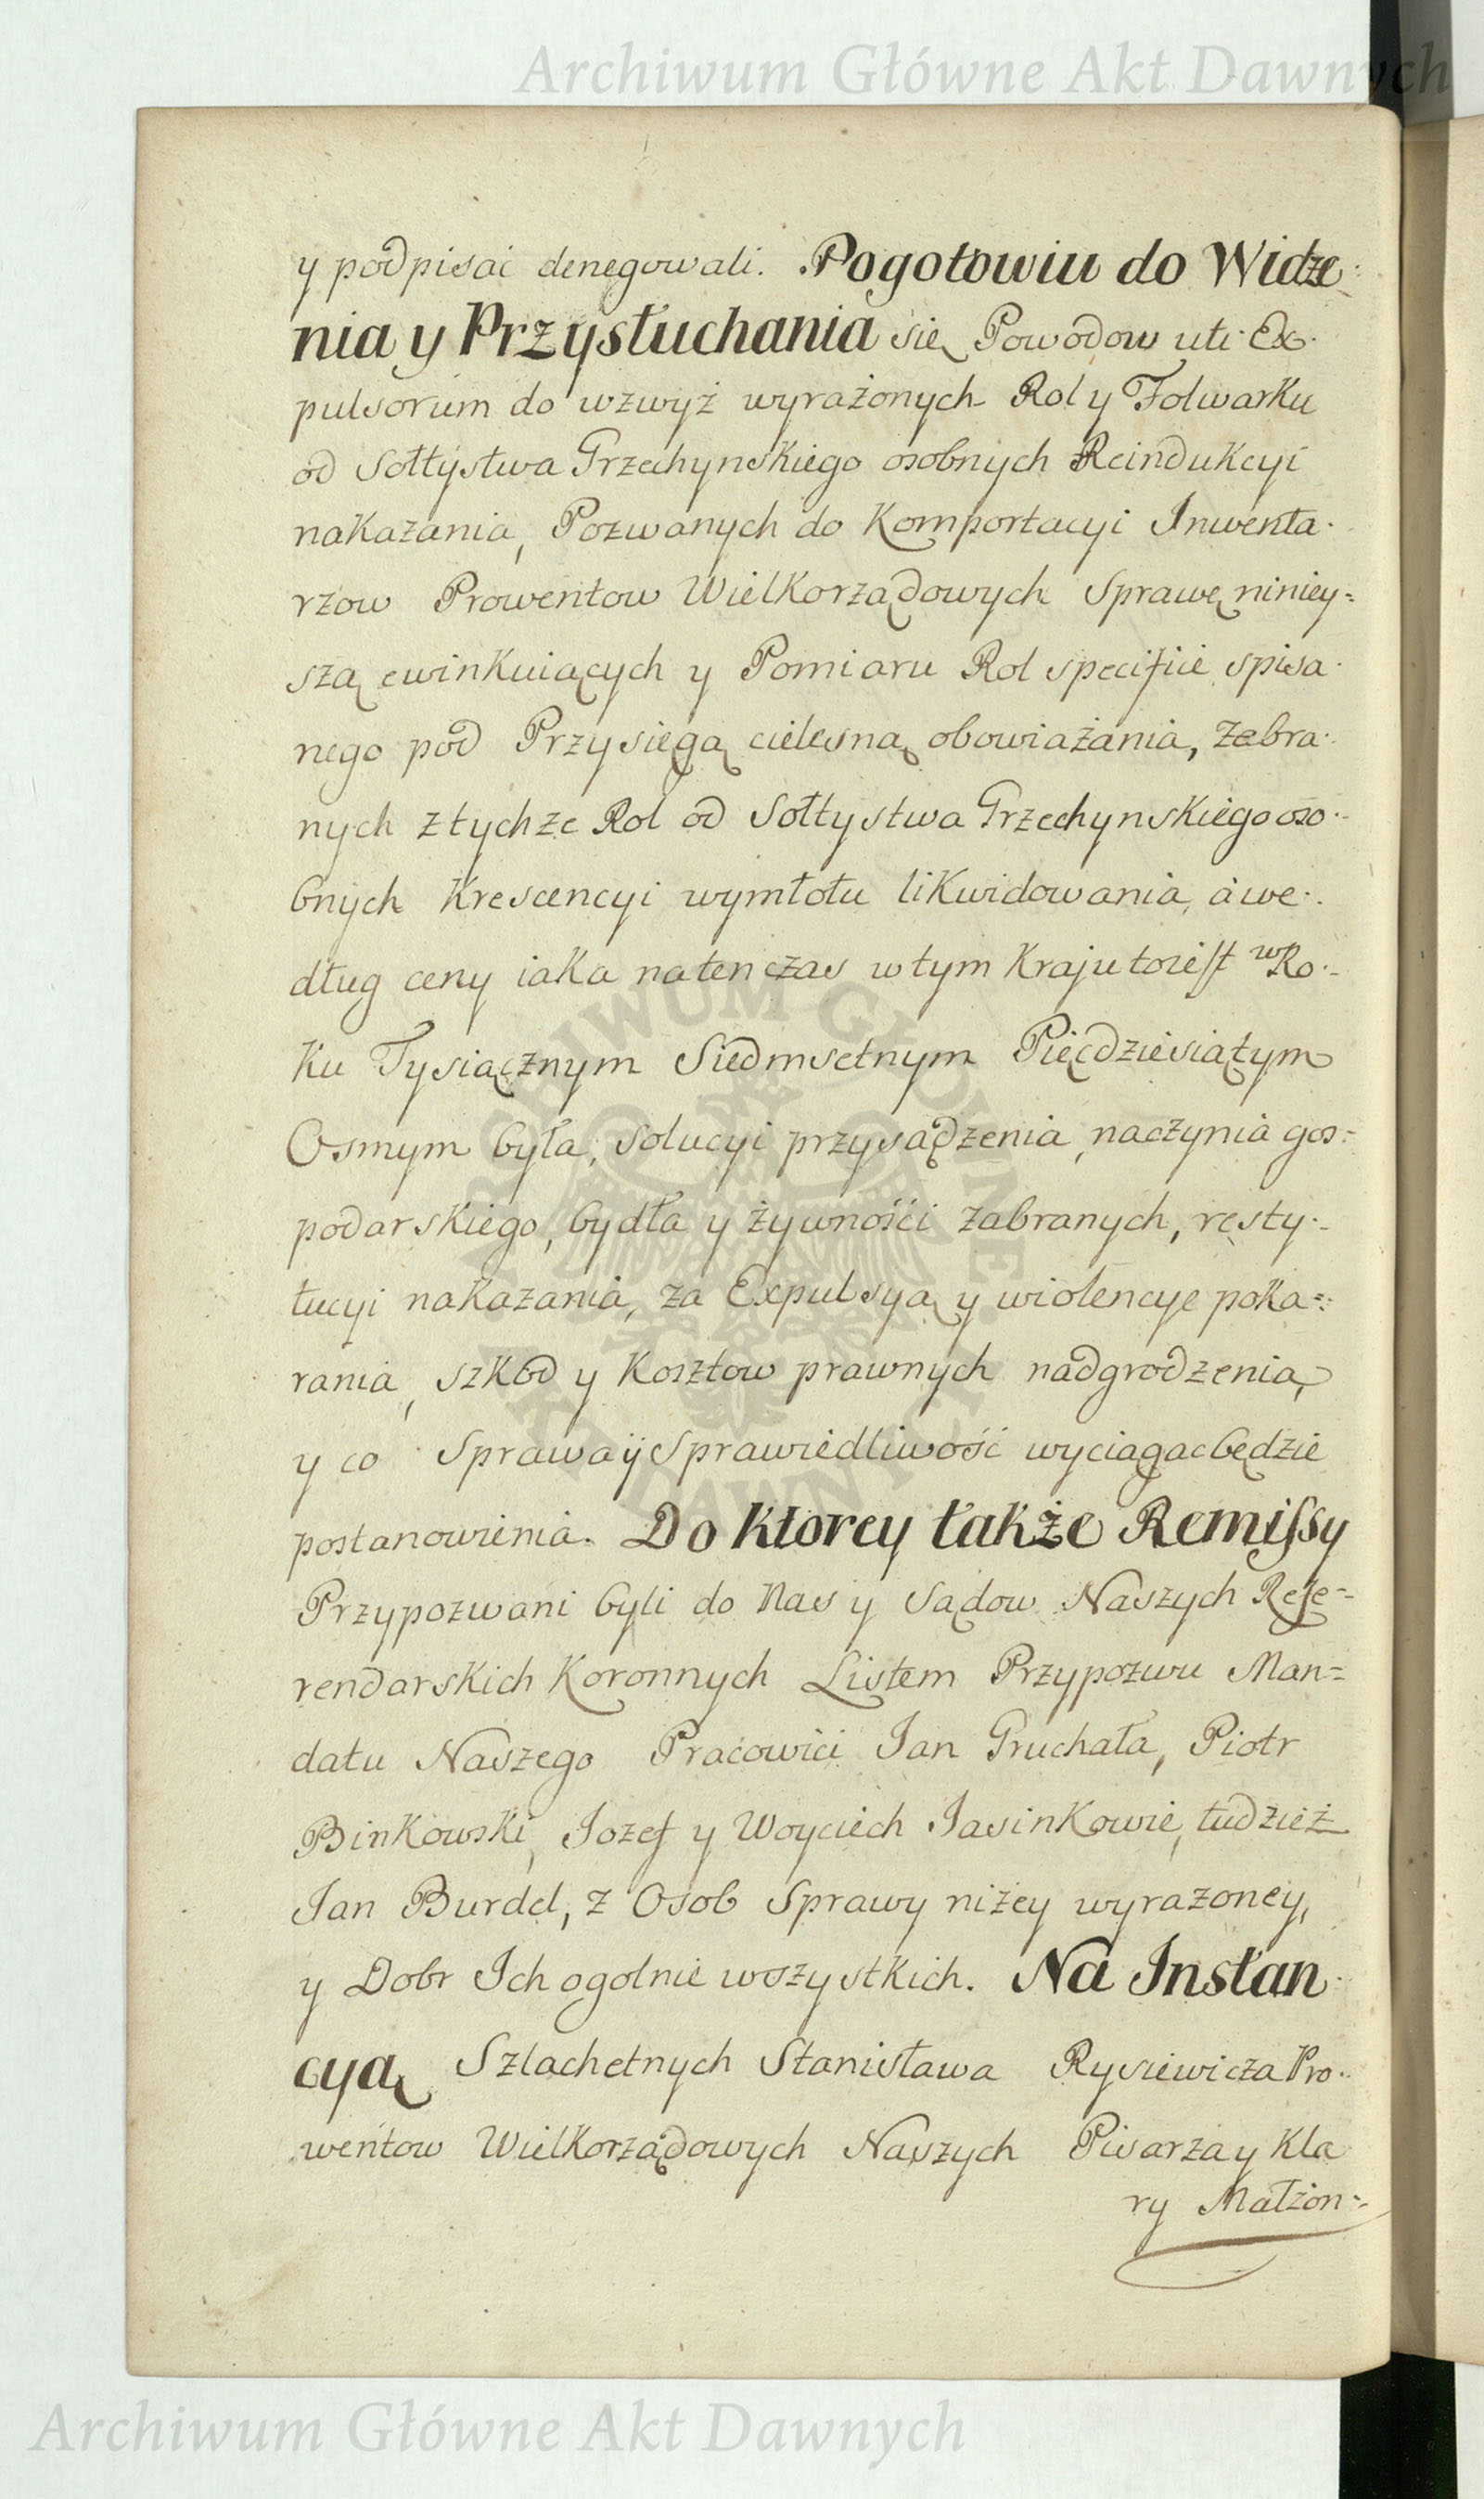 Archiwum Główne Akt Dawnych
y podpisać denegowali. Pogotowiu do Widze-
nia y Przysłuchania się Powodow uti Ex-
pulsorum do wzwyż wyrażonych Rol y Folwarku
od Sołtystwa Grzechynskiego osobnych Reindukcyi
nakazania, Pozwanych do Komportacyi Inwenta-
rzow Prowentow Wielkorządowych Sprawę niniey=
szą ewinkuiących y Pomiaru Rol specifice spisa-
nego pod Przysięgą cielesną obowiażania, Zabra-
nych z tychże Rol od Sołtystwa Grzechynskiego oso-
bnych Krescencyi wymłotu likwidowania, á we-
dług ceny iaka natenczas w tym Kraju to iest w Ro-
ku Tysiącznym Siedmsetnym Pięcdziesiątym
Osmym była, Solucyi przysądzenia, naczynia gos=
podarskiego, bydła y żywnośći zabranych, resty-
tucyi nakazania, za Expulsyą y wiolencye poka=
rania, szkod y Kosztow prawnych nadgrodzenia,
y co Sprawa ÿ Sprawiedliwość wyciagac będzie
postanowienia. Do ktorey także Remissy
Przypozwani byli do Nas y Sądow Naszych Refe=
rendarskich Koronnych Listem Przypozwu Man=
datu Naszego Pracowici Jan Gruchała, Piotr
Binkowski, Jozef y Woyciech Jasinkowie, tudzież
Jan Burdel, z Osob Sprawy niżey wyrazoney,
y Dobr Ich ogolnie wszystkich. Na Instan-
cyą Szlachetnych Stanisława Rysiewicza Pro-
wentow Wielkorządowych Naszych Pisarza y Kla
ry Małżon=
Archiwum Główne Akt Dawnych